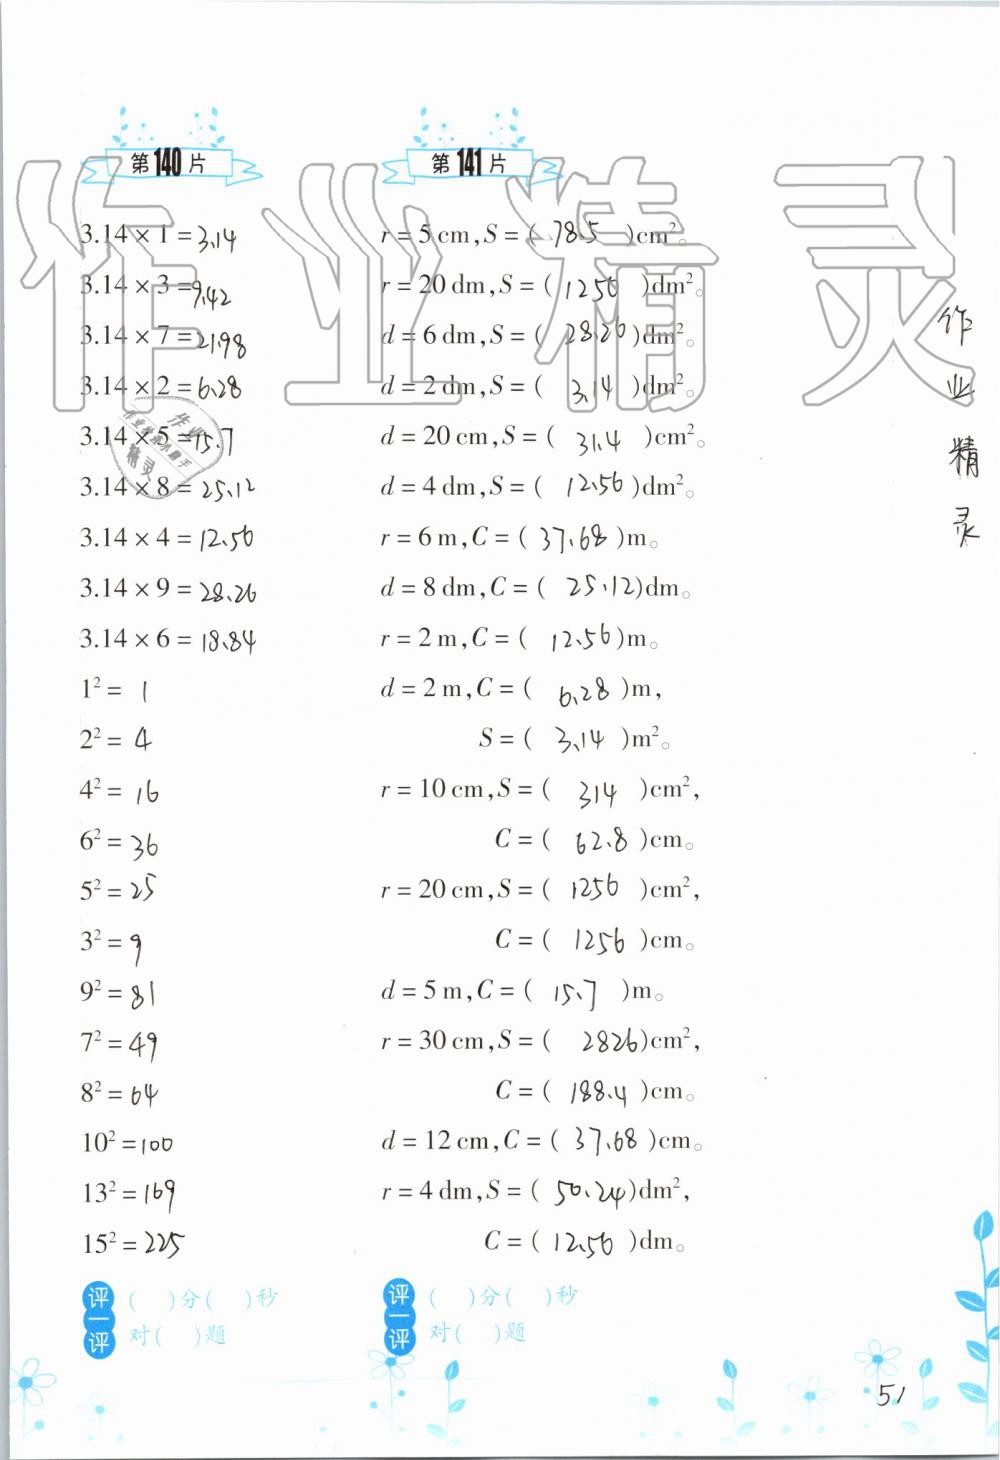 第140片
3.14 × 1 = 3.14
3.14 × 3 = 9.42
3.14 × 7 = 21.98
3.14 × 2 = 6.28
3.14 × 5 = 15.7
3.14 × 8 = 25.12
3.14 × 4 = 12.56
3.14 × 9 = 28.26
3.14 × 6 = 18.84
1² = 1
2² = 4
4² = 16
6² = 36
5² = 25
3² = 9
9² = 81
7² = 49
8² = 64
10² = 100
13² = 169
15² = 225
评一评
( )分( )秒
对( )题
第141片
r = 5 cm, S = ( 78.5 )cm²。
r = 20 dm, S = ( 1256 )dm²。
d = 6 dm, S = ( 28.26 )dm²。
d = 2 dm, S = ( 3.14 )dm²。
d = 20 cm, S = ( 31.4 )cm²。
d = 4 dm, S = ( 12.56 )dm²。
r = 6 m, C = ( 37.68 )m。
d = 8 dm, C = ( 25.12 )dm。
r = 2 m, C = ( 12.56 )m。
d = 2 m, C = ( 6.28 )m,
S = ( 3.14 )m²。
r = 10 cm, S = ( 314 )cm²,
C = ( 62.8 )cm。
r = 20 cm, S = ( 1256 )cm²,
C = ( 1256 )cm。
d = 5 m, C = ( 15.7 )m。
r = 30 cm, S = ( 2826 )cm²,
C = ( 188.4 )cm。
d = 12 cm, C = ( 37.68 )cm。
r = 4 dm, S = ( 50.24 )dm²,
C = ( 12.56 )dm。
评一评
( )分( )秒
对( )题
作业精灵
作业精灵
作业
精灵
51